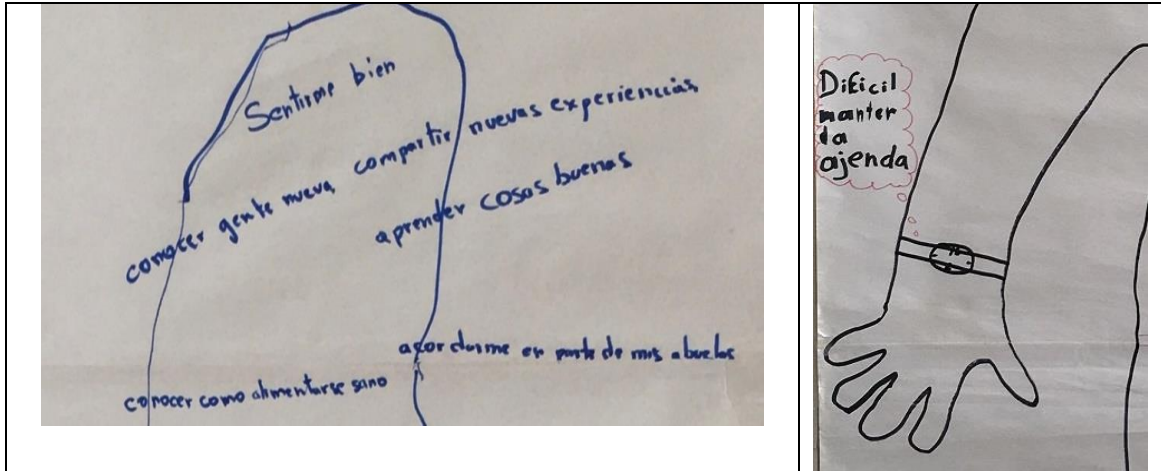 Sentirme bien
conocer gente nueva, compartir nuevas experiencias
aprender cosas buenas
acordarme en parte de mis abuelos
conocer como alimentarse sano
Dificil
manter
la
ajenda